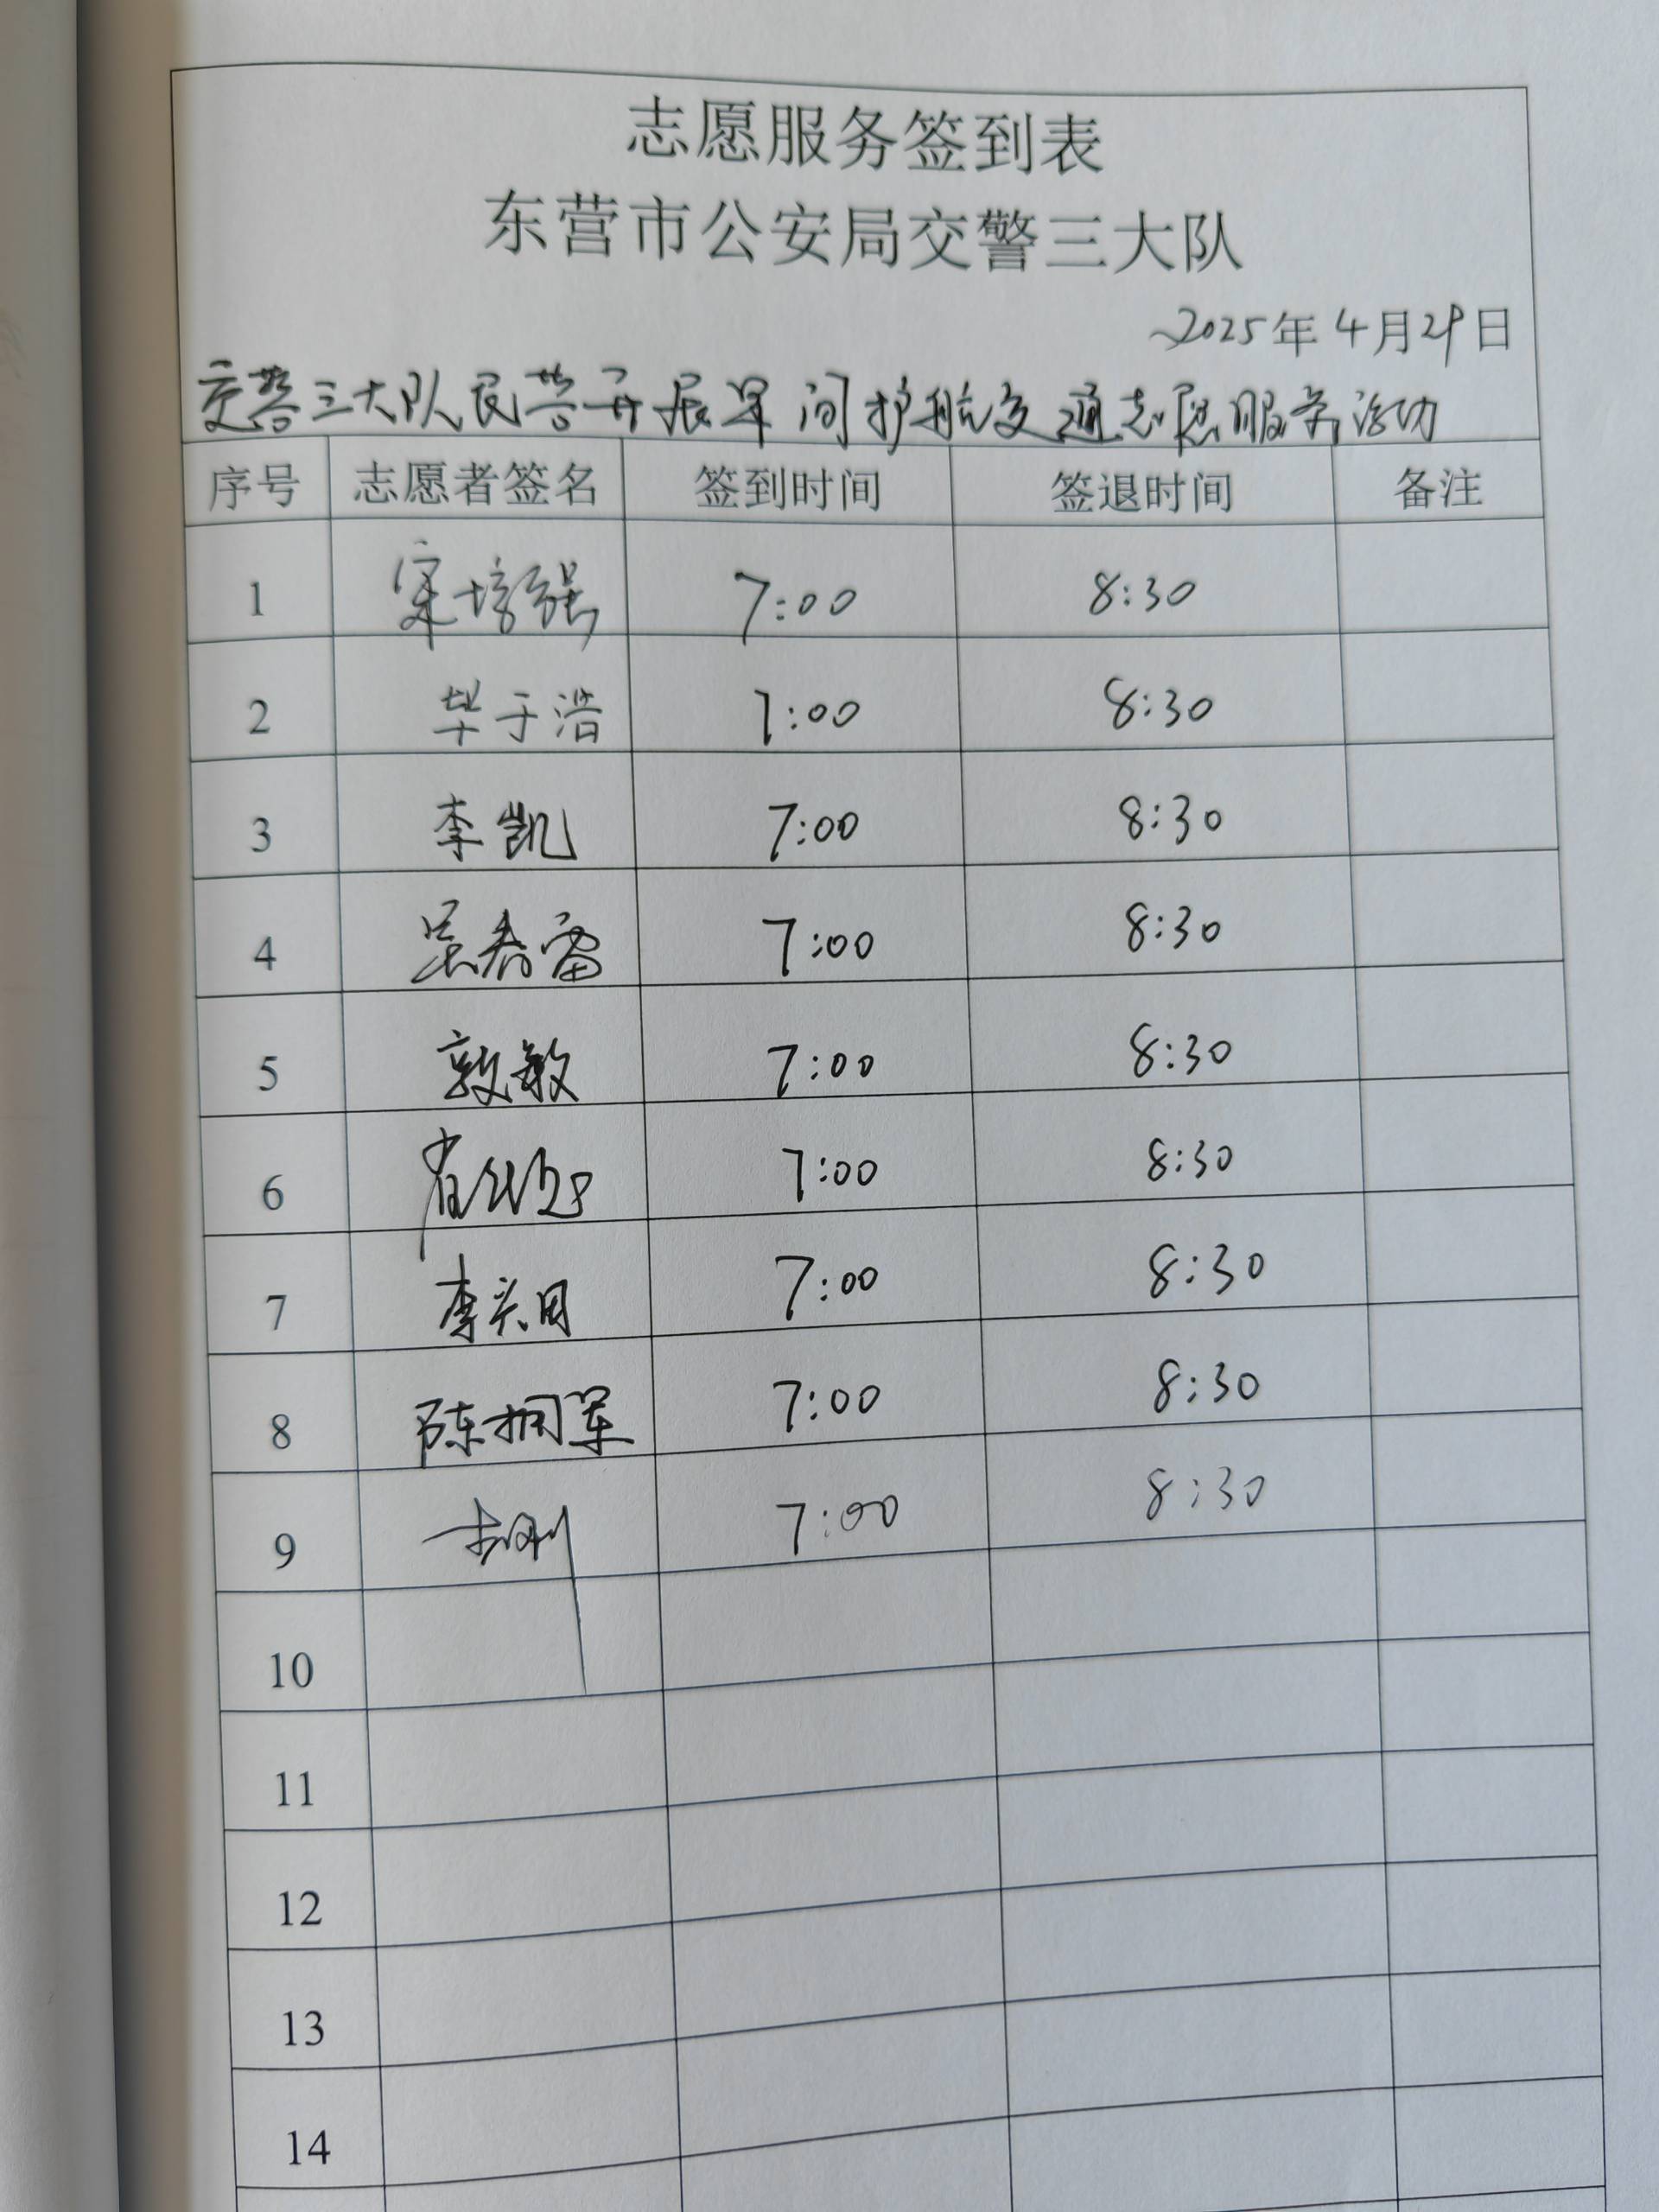 志愿服务签到表
东营市公安局交警三大队
2025年4月29日
交警三大队民警开展早间护航交通志愿服务活动
序号 志愿者签名 签到时间 签退时间 备注
1 宋培强 7:00 8:30
2 毕于浩 7:00 8:30
3 李凯 7:00 8:30
4 吴春雷 7:00 8:30
5 郭敏 7:00 8:30
6 7:00 8:30
7 李关国 7:00 8:30
8 陈拥军 7:00 8:30
9 7:00 8:30
10
11
12
13
14